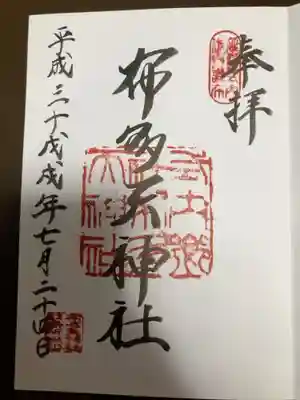 奉拝
布多天神社
平成三十戊戌年七月二十四日